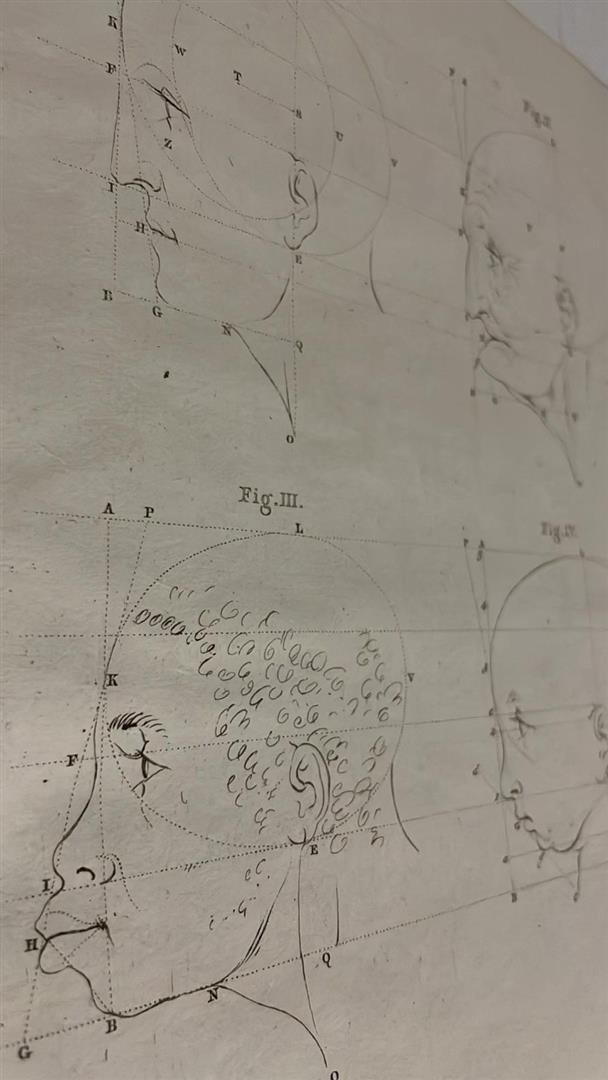 K
W
F
T
S
U
V
Z
I
H
E
B
G
N
Q
O
Fig.II.
Fig.III.
A P L
K
V
F
E
I
H
Q
N
B
G
O
Fig.IV.
P A
B